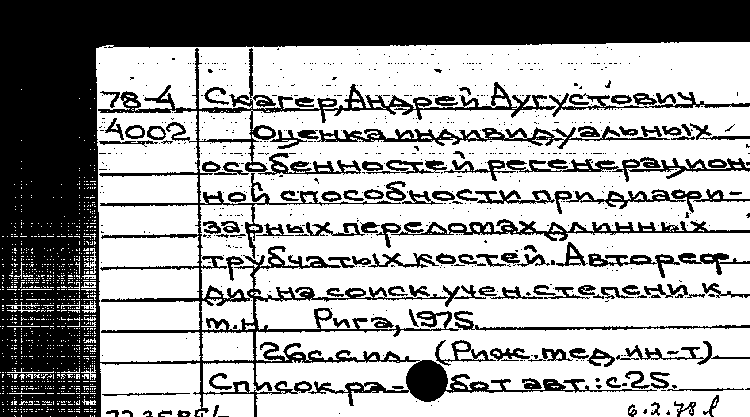 78-4 Скагер, Андрей Аугустович.
4002 Оценка индивидуальных
особенностей регенерацион-
ной способности при диафи-
зарных переломах длинных
трубчатых костей. Автореф.
дис. на соиск. учен. степени к.
м.н. Рига, 1975.
26с. с ил. (Риж. мед. ин-т).
Список ра- бот авт.: с. 25.
6.2.78